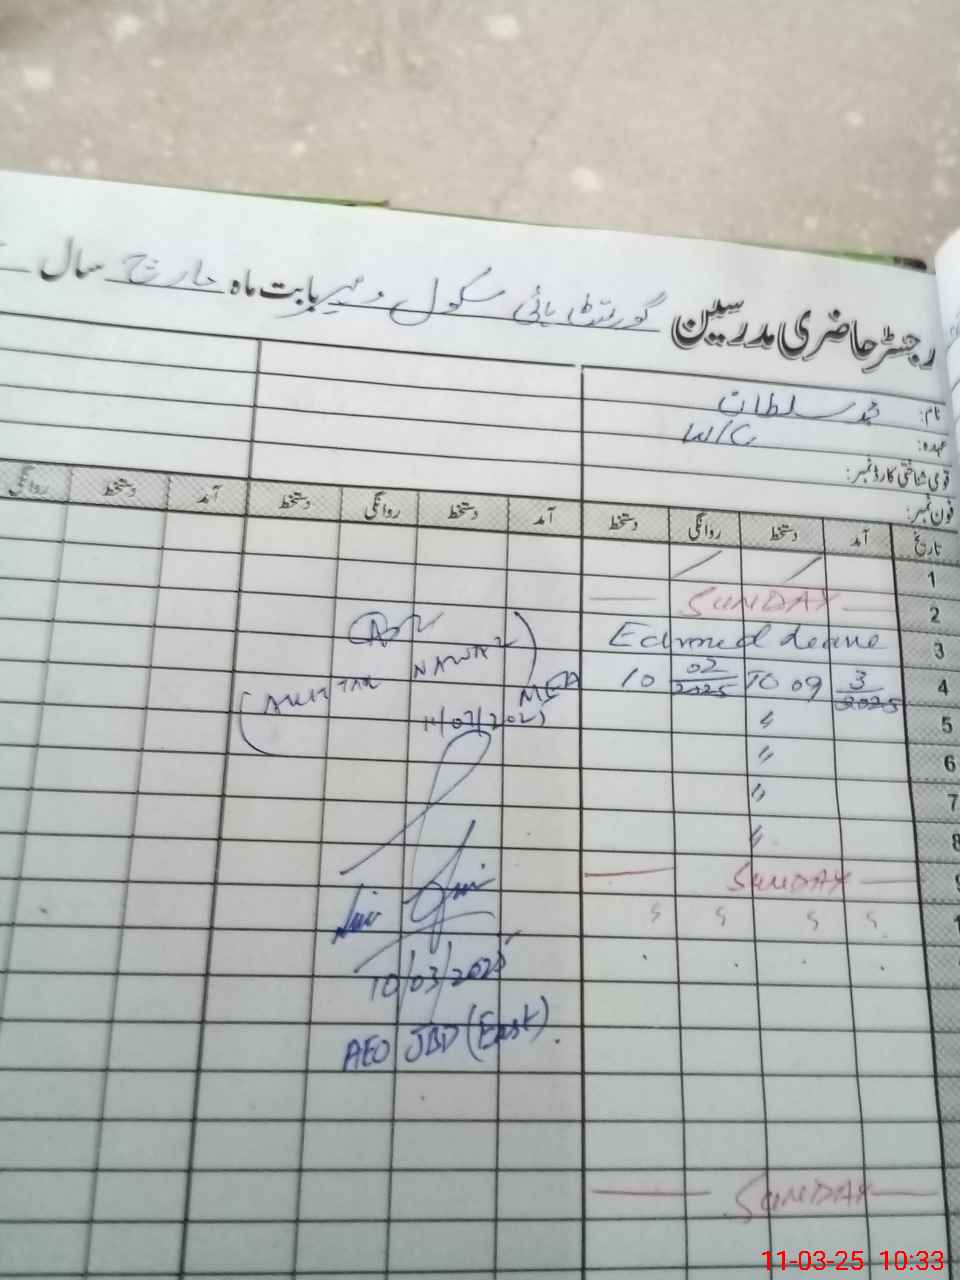 رجسٹر حاضری مدرسین گورنمنٹ ہائی سکول بابت ماہ مارچ سال
نام: محمد سلطان
عہدہ: W/C
قومی شناختی کارڈ نمبر:
فون نمبر:
تاریخ آمد دستخط روانگی دستخط آمد دستخط روانگی دستخط آمد دستخط روانگی
1
2 SUNDAY
3 Earned leave
4 10 02/2025 TO 09 3/2025
5 〃
6 〃
7 〃
8 〃
9 SUNDAY
NAWAZ
MEA
10/03/2025
AEO JBD (East).
SUNDAY
11-03-25 10:33